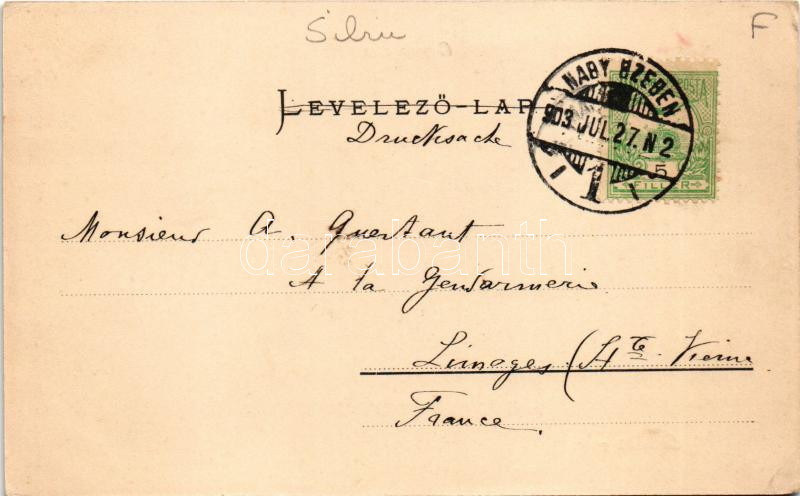 Sibiu
F
LEVELEZŐ-LAP
Drucksache
NAGY SZEBEN
903 JUL. 27. N 2
1
5
FILLÉR
Monsieur A. Guertant
A la Gendarmerie
Limoges (Hte. Vienne
France.
darabanth